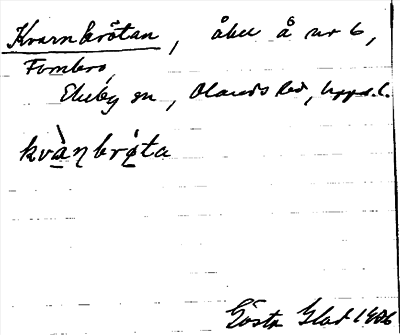 Kvarnbråtan, åker å nr 6,
Fornbro,
Ekeby sn, Olands hd, Upps. l.
kvàṇbrå̀ta
Gösta Glad 1906